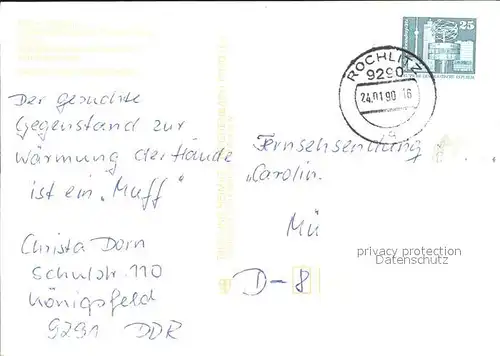 25
ROCHLITZ
9290
24.01.90-16
a
Der gesuchte
Gegenstand zur
Wärmung der Hände
ist ein „Muff"
Christa Dorn
Schulstr. 110
Königsfeld
9291 DDR
Fernsehsendung
„Carolin.
Mü
D-8
privacy protection
Datenschutz